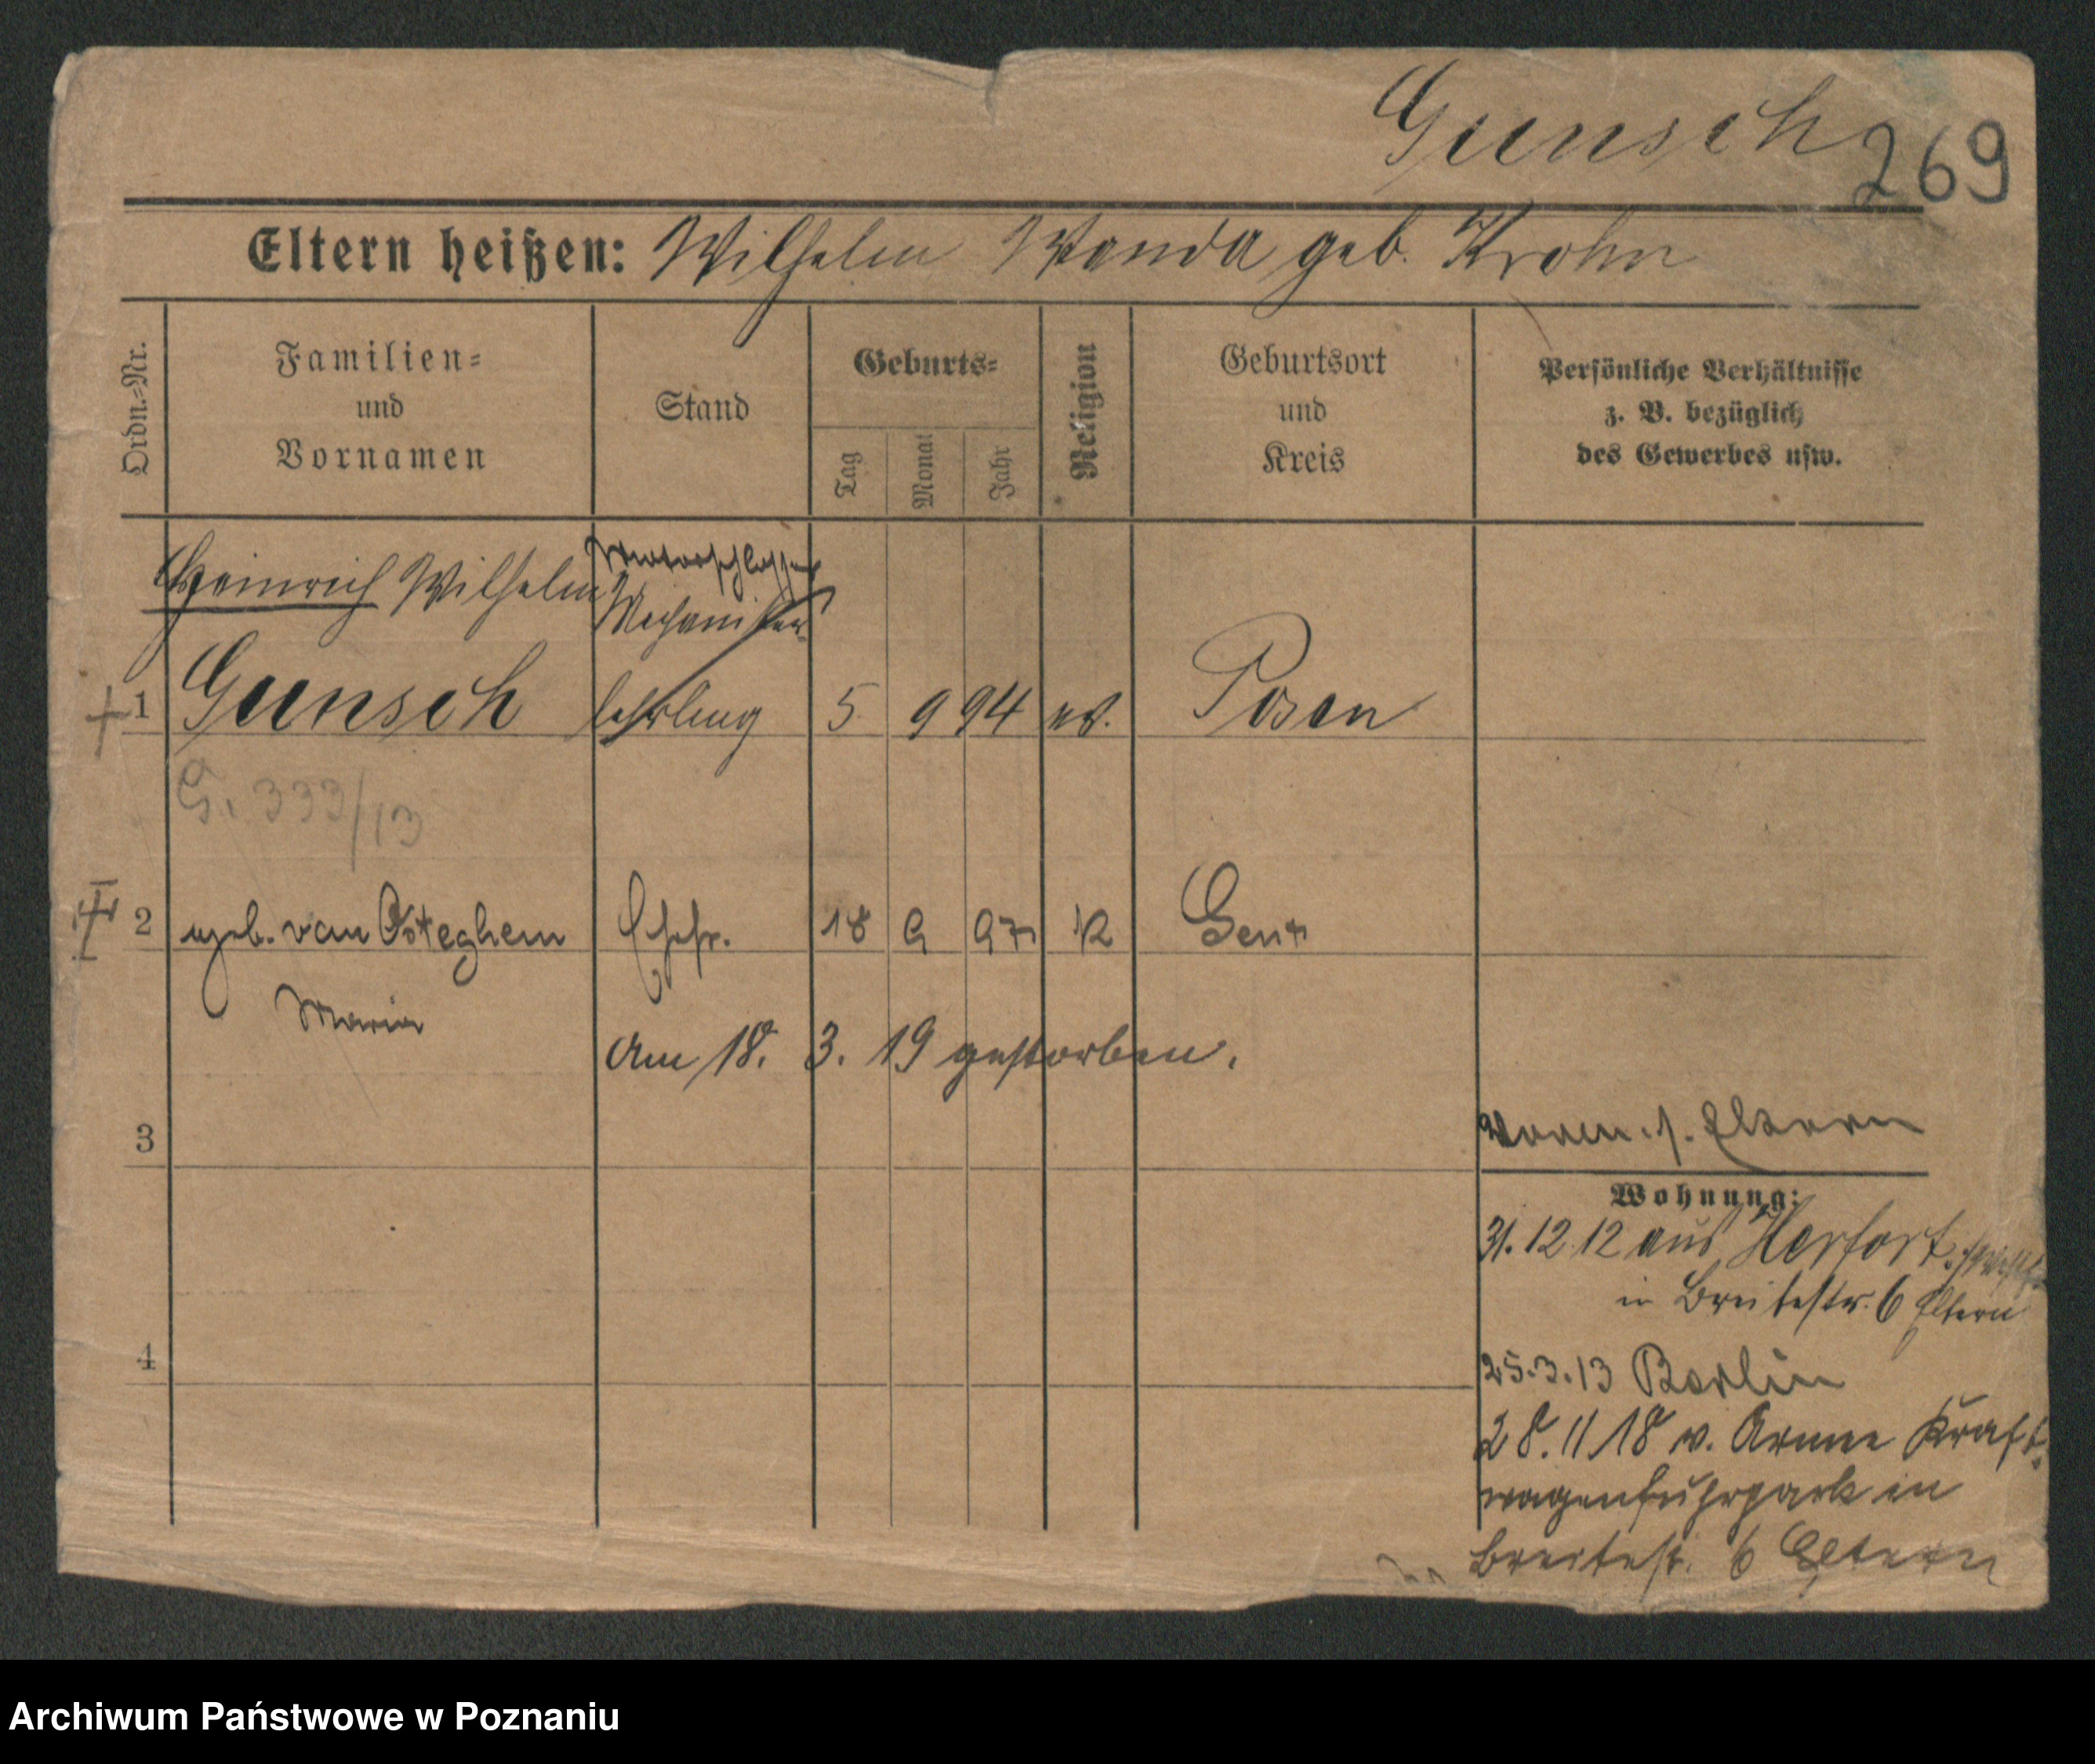 Gunsch
269
Eltern heißen: Wilhelm Wanda geb. Krohn
Ordn.-Nr.
Familien-
und
Vornamen
Stand
Geburts-
Tag
Monat
Jahr
Religion
Geburtsort
und
Kreis
Persönliche Verhältnisse
z. B. bezüglich
des Gewerbes usw.
Heinrich Wilhelm Motorschlosser
Mechaniker-
1 Gunsch lehrling 5 9 94 ev. Posen
G. 333/13
2 geb. van Osteghem Ehefr. 18 9 97 K Gent
Maria
Am 18. 3. 19 gestorben.
3
Eltern
Wohnung:
31.12.12 aus Herfort
in Breitestr. 6 Eltern
4
25.3.13 Berlin
28.11 18 v. Armee Kraft-
wagenfuhrpark in
Breitestr. 6 Eltern
Archiwum Państwowe w Poznaniu